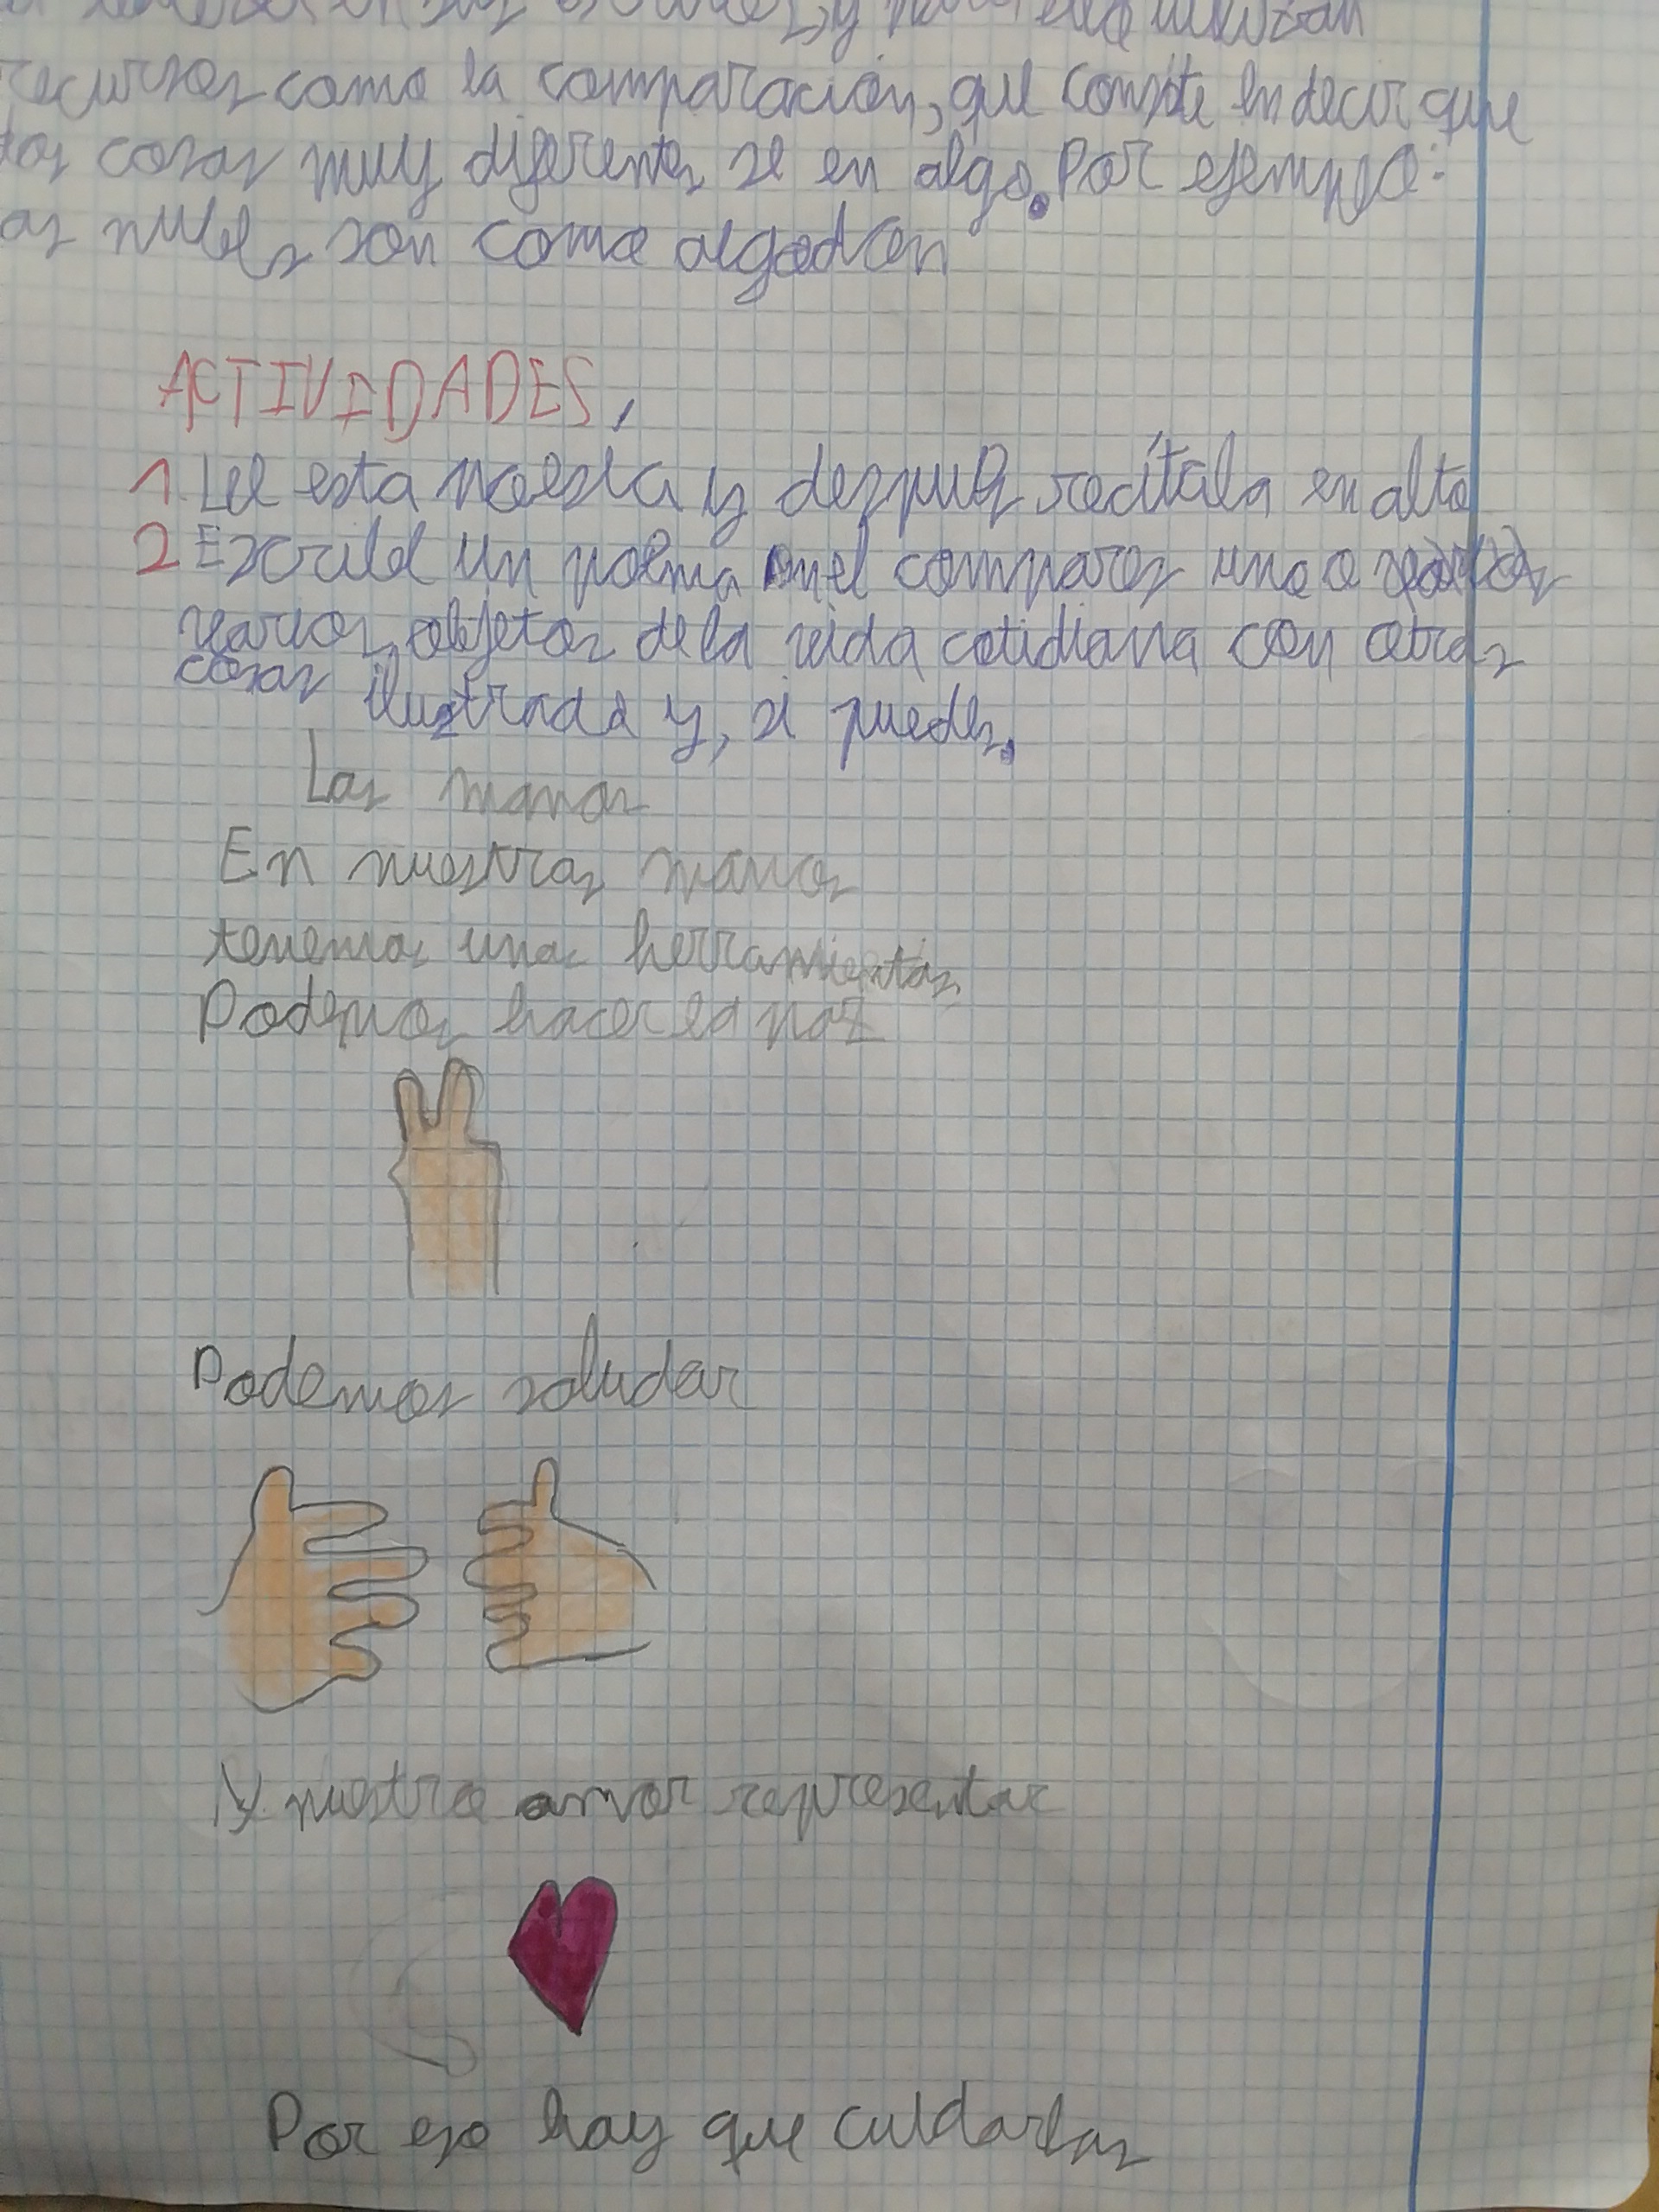 recursos como la comparación, que consiste en decir que
dos cosas muy diferentes se en algo. Por ejemplo:
as nubes son como algodon
ACTIVIDADES,
1. Lee esta poesia y despues recítala en alto
2 Escribe un poema en el compares uno o varios
varios objetos de la vida cotidiana con otras
cosas ilustrada y, si puedes.
Las manos
En nuestras manos
tenemos unas herramientas,
Podemos hacer la paz
Podemos saludar
Y nuestro amor representar
Por eso hay que cuidarlas